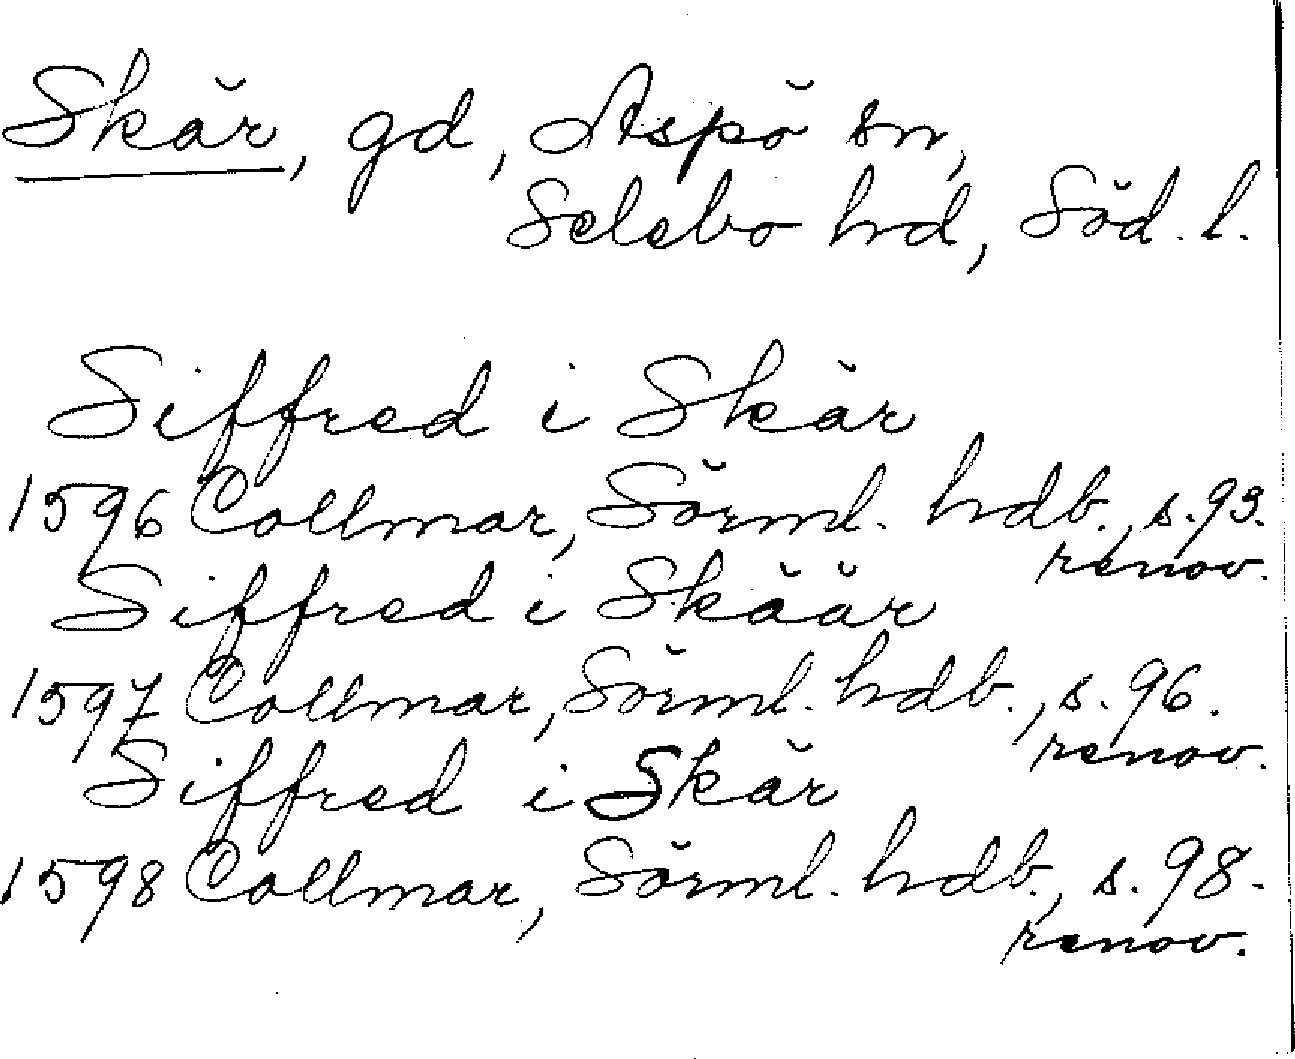 Skär, gd, Aspö sn,
Selebo hd, Söd. l.
Siffred i Skär
1596 Collmar, Sörml. hdb., s. 93.
renov.
Siffred i Skäär
1597 Collmar, Sörml. hdb., s. 96.
renov.
Siffred i Skär
1598 Collmar, Sörml. hdb., s. 98.
renov.